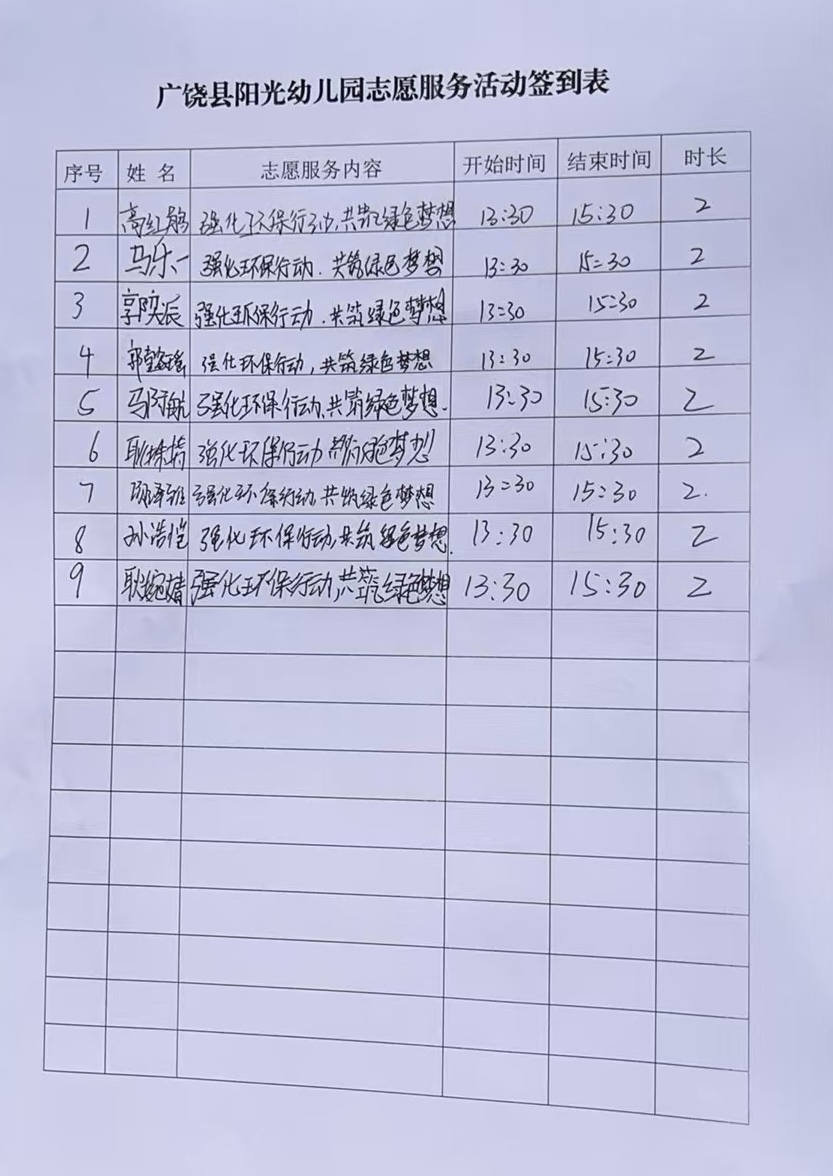 广饶县阳光幼儿园志愿服务活动签到表
序号 姓 名 志愿服务内容 开始时间 结束时间 时长
1 高红鹃 强化环保行动,共筑绿色梦想 13:30 15:30 2
2 马乐一 强化环保行动.共筑绿色梦想 13:30 15:30 2
3 郭奕辰 强化环保行动.共筑绿色梦想 13:30 15:30 2
4 强化环保行动,共筑绿色梦想 13:30 15:30 2
5 强化环保行动,共筑绿色梦想. 13:30 15:30 2
6 强化环保行动 绿色梦想 13:30 15:30 2
7 强化环保行动,共筑绿色梦想 13:30 15:30 2.
8 孙浩恺 强化环保行动,共筑绿色梦想. 13:30 15:30 2
9 耿婉婧 强化环保行动,共筑绿色梦想 13:30 15:30 2